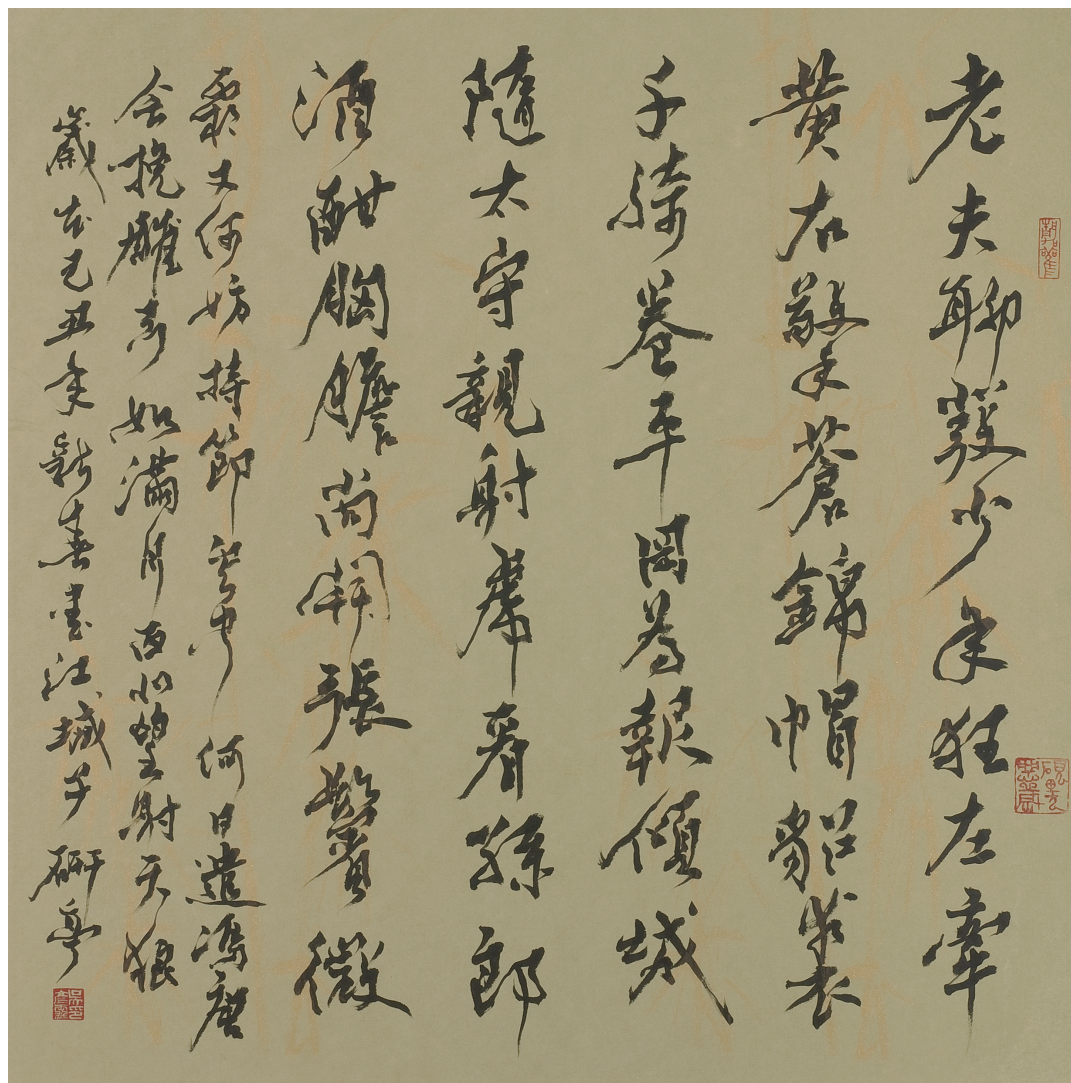 老夫聊發少年狂左牽
黄右擎蒼錦帽貂裘
千騎卷平岡為報傾城
隨太守親射虎看孫郎
酒酣胸膽尚開張鬢微
霜又何妨持節雲中何日遣馮唐
会挽雕弓如滿月西北望射天狼
歲在己丑年新春書江城子研亭